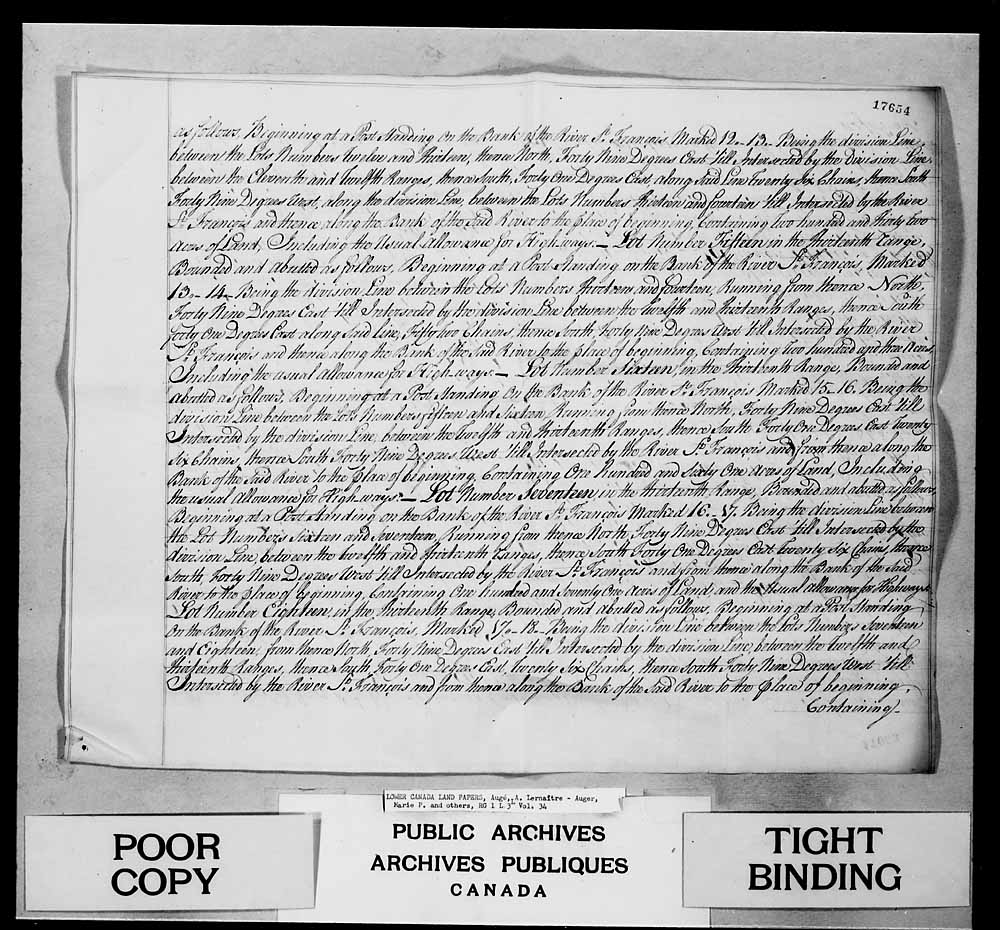 17654
as follows, Beginning at a Post standing on the Bank of the River St. François Marked 12-13. Being the division Line,
between the Lots Numbers Twelve and thirteen, thence North, Forty Nine Degrees East till Intersected by the division Line
between the Eleventh and Twelfth Ranges, thence South, Forty One Degrees East, along said Line Twenty Six Chains, thence South
Forty Nine Degrees West, along the division Line, between the Lots Numbers thirteen and fourteen till Intersected by the River
St. François and thence along the Bank of the said River to the place of beginning, Containing Two hundred and thirty two
Acres of Land, Including the Usual Allowance for Highways.— Lot Number Fifteen in the thirteenth range,
Bounded and abutted as follows, Beginning at a Post standing on the Bank of the River St. François, Marked
13-14- Being the division Line between the Lots Numbers thirteen and fourteen, Running from thence North,
Forty Nine Degrees East till Intersected by the division Line between the Twelfth and thirteenth Ranges, thence South
Forty One Degrees East along said Line, Fifty two Chains thence South Forty Nine Degrees West till Intersected by the River
St. François and thence along the Bank of the said River to the place of beginning, Containing Two hundred and three Acres,
Including the usual allowance for Highways — Lot Number Sixteen, in the thirteenth Range, Bounded and
abutted as follows, Beginning at a Post standing On the Bank of the River St. François Marked 15-16. Being the
division Line between the Lots Numbers fifteen and Sixteen, Running from thence North, Forty Nine Degrees East till
Intersected by the division Line, between the Twelfth and thirteenth Ranges, thence South Forty One Degrees East twenty
Six Chains, thence South Forty Nine Degrees West till Intersected by the River St. François and from thence along the
Bank of the said River to the place of beginning, Containing One Hundred and Sixty One Acres of Land, Including
the usual allowance for Highways:— Lot Number Seventeen in the thirteenth Range, Bounded and abutted as follows,
Beginning at a Post standing on the Bank of the River St. François Marked 16-17. Being the division Line between
the Lot Numbers Sixteen and Seventeen Running from thence North, Forty Nine Degrees East till Intersected by the
division Line, between the twelfth and thirteenth Ranges, thence South Forty One Degrees East Twenty Six Chains, thence
South, Forty Nine Degrees West till Intersected by the River St. François and from thence along the Bank of the said
River to the place of beginning, Containing One Hundred and Seventy One Acres of Land and the Usual allowance for Highways
Lot Number Eighteen in the thirteenth Range, Bounded and abutted as follows, Beginning at a Post Standing
On the Bank of the River St. François, Marked 17-18- Being the division Line between the Lots Numbers Seventeen
and Eighteen, from thence North, Forty Nine Degrees East till Intersected by the division Line, between the Twelfth and
thirteenth Ranges, thence South Forty One Degrees East, twenty Six Chains, thence South Forty Nine Degrees West till
Intersected by the River St. François and from thence along the Bank of the said River to the place of beginning,
Containing
LOWER CANADA LAND PAPERS, Augé, A. Lemaître - Auger,
Marie P. and others, RG 1 L 3" Vol. 34
POOR
COPY
PUBLIC ARCHIVES
ARCHIVES PUBLIQUES
CANADA
TIGHT
BINDING